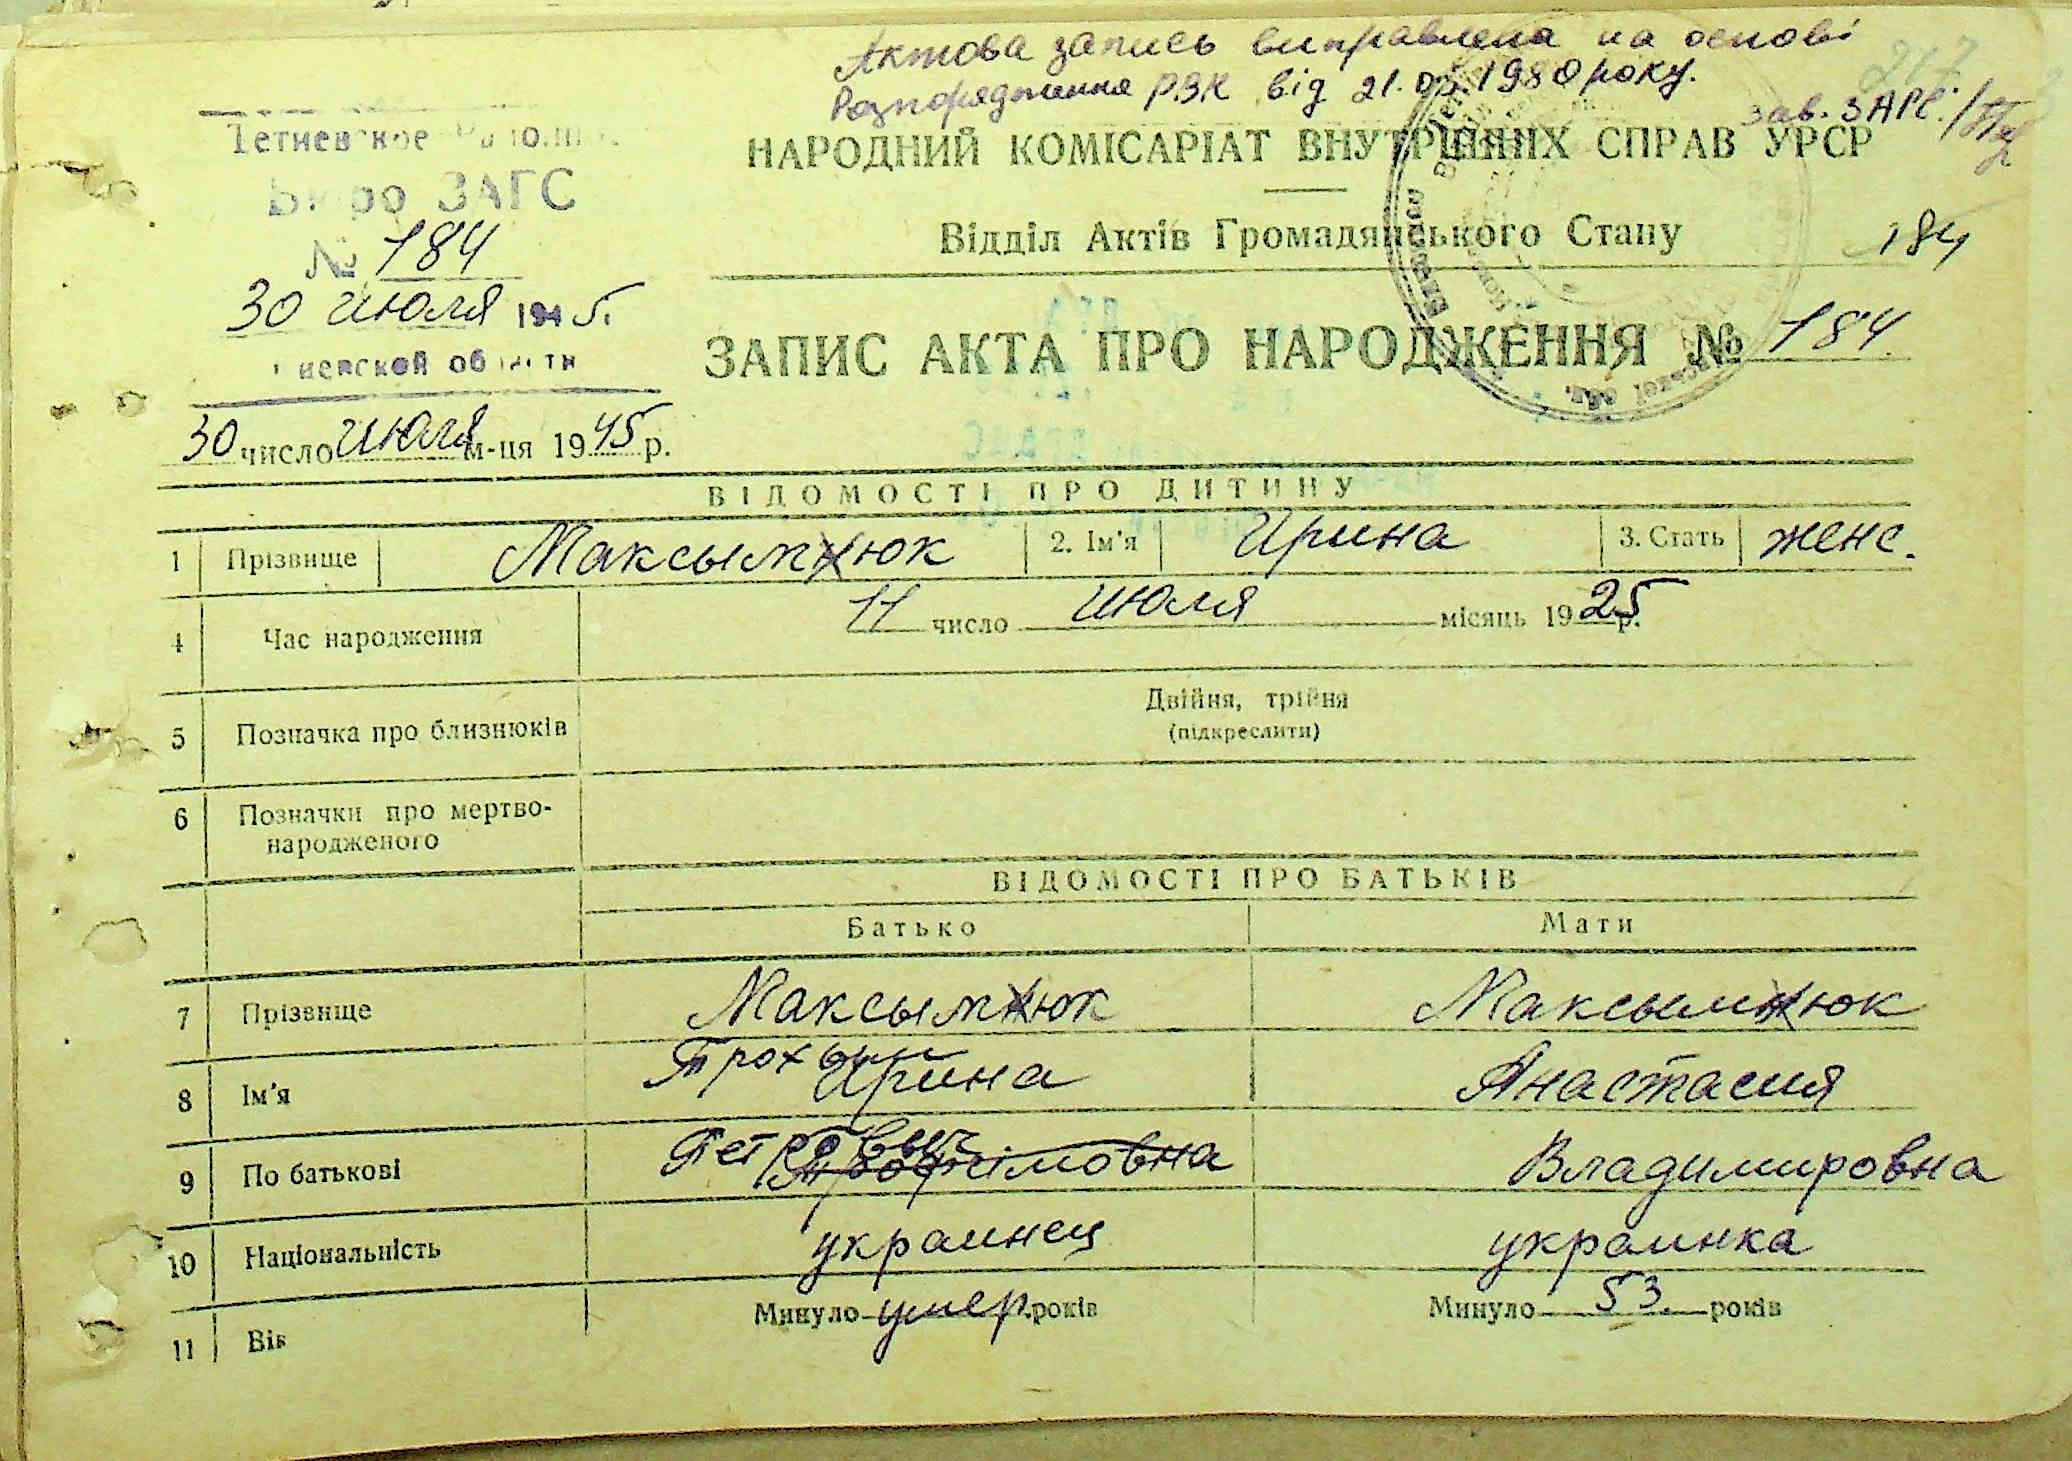 Актова запись виправлена на основі
Розпорядження РВК від 21.05.1980 року.
зав. ЗАРС.
Тетиевское
Бюро ЗАГС
№ 184
30 июля 1945.
Киевской области
НАРОДНИЙ КОМІСАРІАТ ВНУТРІШНІХ СПРАВ УРСР
Відділ Актів Громадянського Стану
184
ЗАПИС АКТА ПРО НАРОДЖЕННЯ № 184.
30 число июля м-ця 1945 р.
ВІДОМОСТІ ПРО ДИТИНУ
1 Прізвище Максымнюк 2. Ім'я Ирина 3. Стать женс.
4 Час народження 11 число июля місяць 1925 р.
5 Позначка про близнюків Двійня, трійня
(підкреслити)
6 Позначки про мертво-
народженого
ВІДОМОСТІ ПРО БАТЬКІВ
Батько Мати
7 Прізвище Максымнюк Максымнюк
8 Ім'я Трохым Ирина Анастасия
9 По батькові Петрович Трофимовна Владимировна
10 Національність украинец украинка
11 Вік Минуло умер. років Минуло 53. років